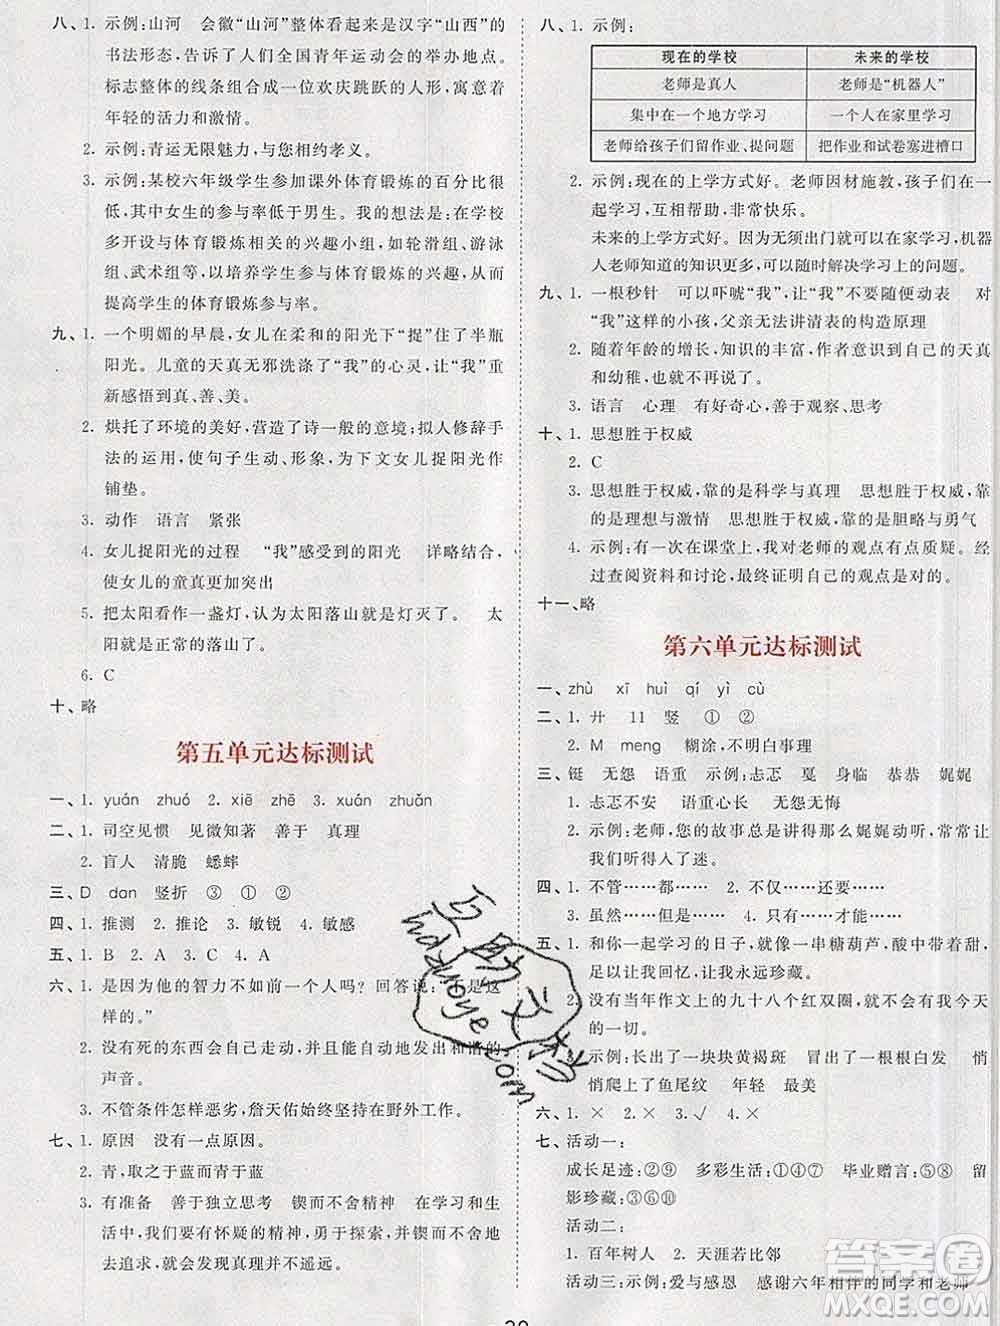 八、1. 示例:山河　会徽“山河”整体看起来是汉字“山西”的
书法形态,告诉了人们全国青年运动会的举办地点。
标志整体的线条组合成一位欢庆跳跃的人形,寓意着
年轻的活力和激情。
2. 示例:青运无限魅力,与您相约孝义。
3. 示例:某校六年级学生参加课外体育锻炼的百分比很
低,其中女生的参与率低于男生。我的想法是:在学校
多开设与体育锻炼有关的兴趣小组,如轮滑组、游泳
组、武术组等,以培养学生参与体育锻炼的兴趣,从而
提高学生的体育锻炼参与率。
九、1. 一个明媚的早晨,女儿在柔和的阳光下“捉”住了半瓶
阳光。儿童的天真无邪洗涤了“我”的心灵,让“我”重
新感悟到真、善、美。
2. 烘托了环境的美好,营造了诗一般的意境;拟人修辞手
法的运用,使句子生动、形象,为下文女儿捉阳光的写作
铺垫。
3. 动作　语言　紧张
4. 女儿捉阳光的过程　“我”感受到的阳光　详略结合,
使女儿的童真更加突出
5. 把太阳看作一盏灯,认为太阳落山就是灯灭了。　太
阳就是正常的落山了。
6. C
十、略
第五单元达标测试
一、1. yuán　zhuó　2. xiē　zhē　3. xuán　zhuǎn
二、1. 司空见惯　见微知著　善于　真理
2. 盲人　清脆　蟋蟀
三、D　dan　竖折　③　①　②
四、1. 推测　2. 推论　3. 敏锐　4. 敏感
五、1. B　2. A　3. C　4. A
六、1. 是因为他的智力不如前一个人吗?回答说:“不是这
样的。”
2. 没有死的东西会自己走动,并能自动地发出和谐的
声音。
3. 不管条件怎样恶劣,詹天佑始终坚持在野外工作。
七、1. 原因　没有一点原因。
2. 青,取之于蓝而青于蓝
3. 有准备　善于独立思考　锲而不舍精神　在学习和生
活中,我们要有怀疑的精神,并勇于探索,锲而不舍地
追求,这样才能发现真理并不遥远。
八、1. 示例:
现在的学校　未来的学校
老师是真人　老师是“机器人”
集中在一个地方学习　一个人在家里学习
老师给孩子们留作业、提问题　把作业和试卷塞进槽口
2. 示例:现在的上学方式好。老师因材施教,孩子们在一
起学习,互相帮助,非常快乐。
未来的上学方式好。因为无须出门就可以在家学习,机器
人老师知道的知识更多,可以随时解决学习上的问题。
九、1. 一根秒针　可以吓唬“我”,让“我”不要随便动表　对
“我”这样的小孩,父亲无法讲清表的构造原理
2. 随着年龄的增长,知识的丰富,作者意识到自己的天真
和幼稚,也就不再说了。
3. 语言　心理　有好奇心,善于观察、思考
十、1. 思想胜于权威
2. C
3. 思想胜于权威,靠的是科学与真理　思想胜于权威,靠
的是理想与激情　思想胜于权威,靠的是胆略与勇气
4. 示例:有一次在课堂上,我对老师的观点有点质疑。经
过查阅资料和讨论,最终证明自己的观点是对的。
十一、略
第六单元达标测试
一、zhù　xī　huì　qí　yì　cù
二、1. 廾　11　竖　①　②
2. M　meng　糊涂,不明白事理
三、铤　无怨　语重　示例:忐忑　戛　身临　恭恭　娓娓
1. 忐忑不安　语重心长　无怨无悔
2. 示例:老师,您的故事总是讲得那么娓娓动听,常常让
我们听得入了迷。
四、1. 不管……都……　2. 不仅……还要……
3. 虽然……但是……　4. 只有……才能……
五、1. 和你一起学习的日子,就像一串糖葫芦,酸中带着甜,
足以让我回忆,让我永远珍藏。
2. 没有当年作文上的九十八个红双圈,就没有我今天
的一切。
3. 示例:长出了一块块黄褐斑　冒出了一根根白发　悄
悄爬上了鱼尾纹　年轻　最美
六、1. ×　2. ×　3. √　4. ×
七、活动一:
成长足迹:②⑨　多彩生活:①④⑦　毕业赠言:⑤⑧　留
影珍藏:③⑥⑩
活动二:
1. 百年树人　2. 天涯若比邻
活动三:示例:爱与感恩　感谢六年相伴的同学和老师
答案圈
MXQE.COM